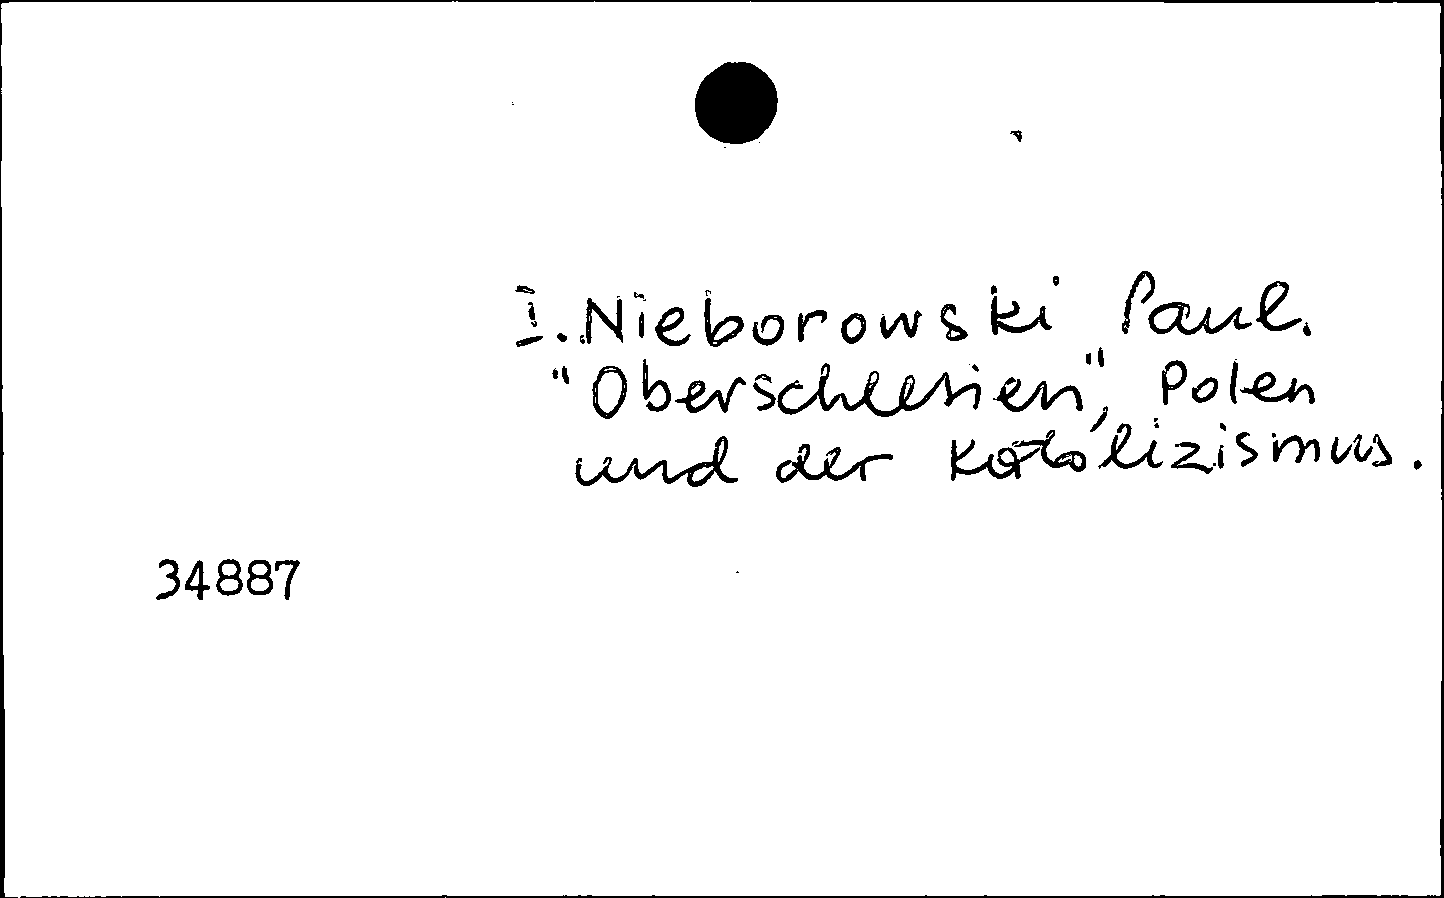 I. Nieborowski Paul.
"Oberschlesien", Polen
und der Katolizismus.
34887